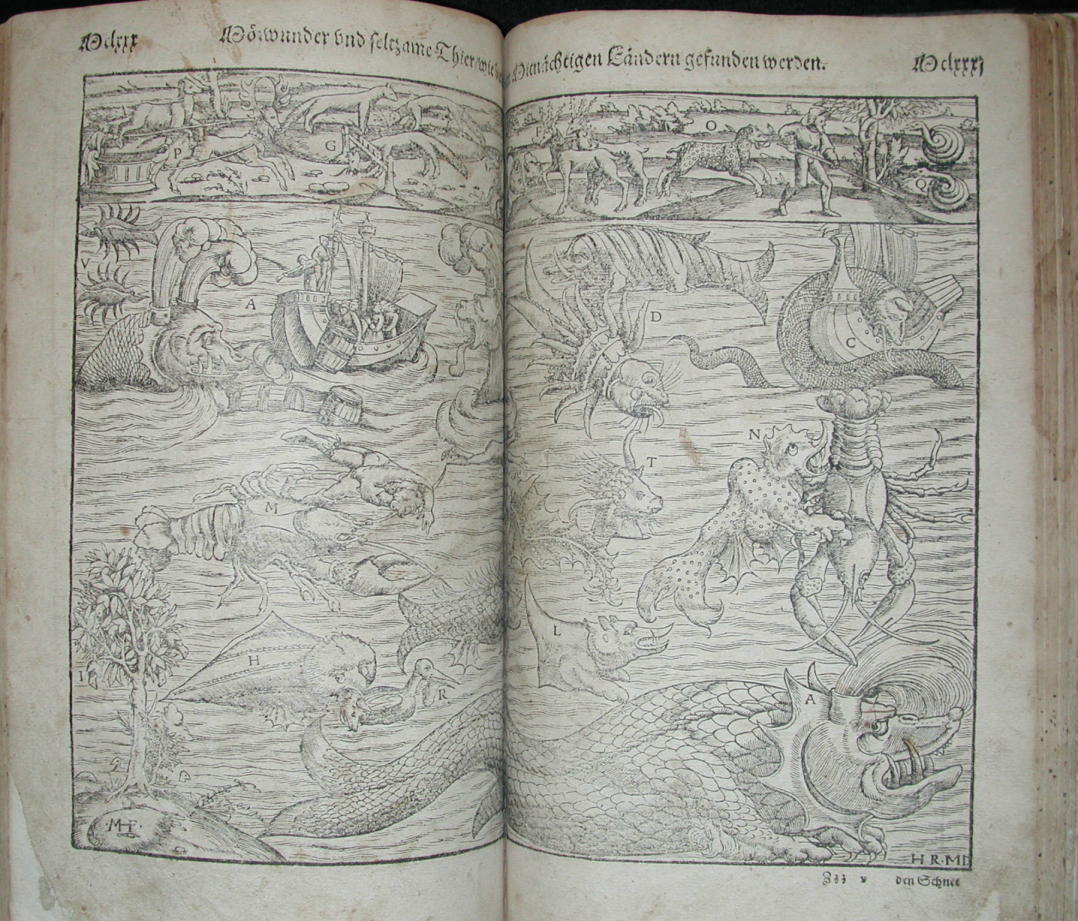 Mclxxx
Mörwunder vnd seltzame Thier/wie
Mitnächtigen Ländern gefunden werden.
Mclxxxj
P
G
F
O
Q
V
A
D
C
M
T
N
I
H
R
L
A
MHF
H R·MD
Zzz v
den Schnee